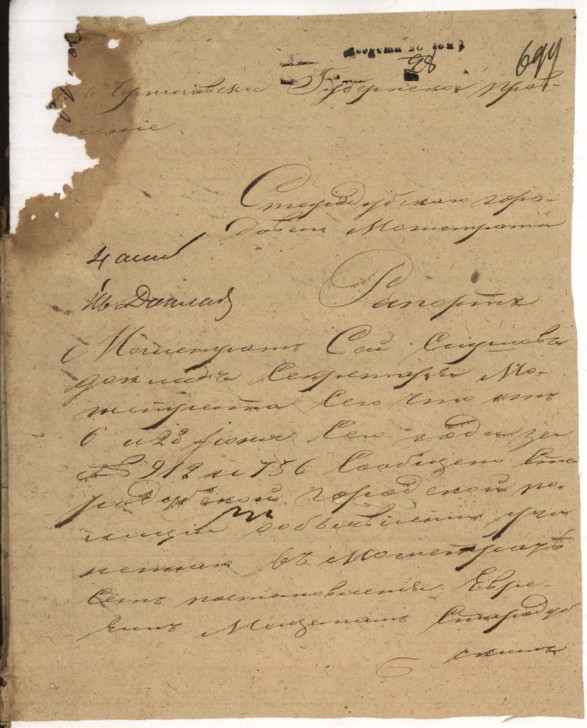 699
28
Черниговское Губернское прав-
ление
Стародубского горо-
доваго Магистрата
Къ Докладу
Рапортъ
Магистратъ Сей Слушавъ
докладъ Секретаря Ма-
гистрата Сего что отъ
6 и 23 Июня Сего года за
№ 912 и 736 Сообщено Ста
родубской городской по-
лиции объ объявлении учи
ненная въ Магистратѣ
Семъ постановления Евре-
ямъ Мещанамъ Стародуб
скимъ